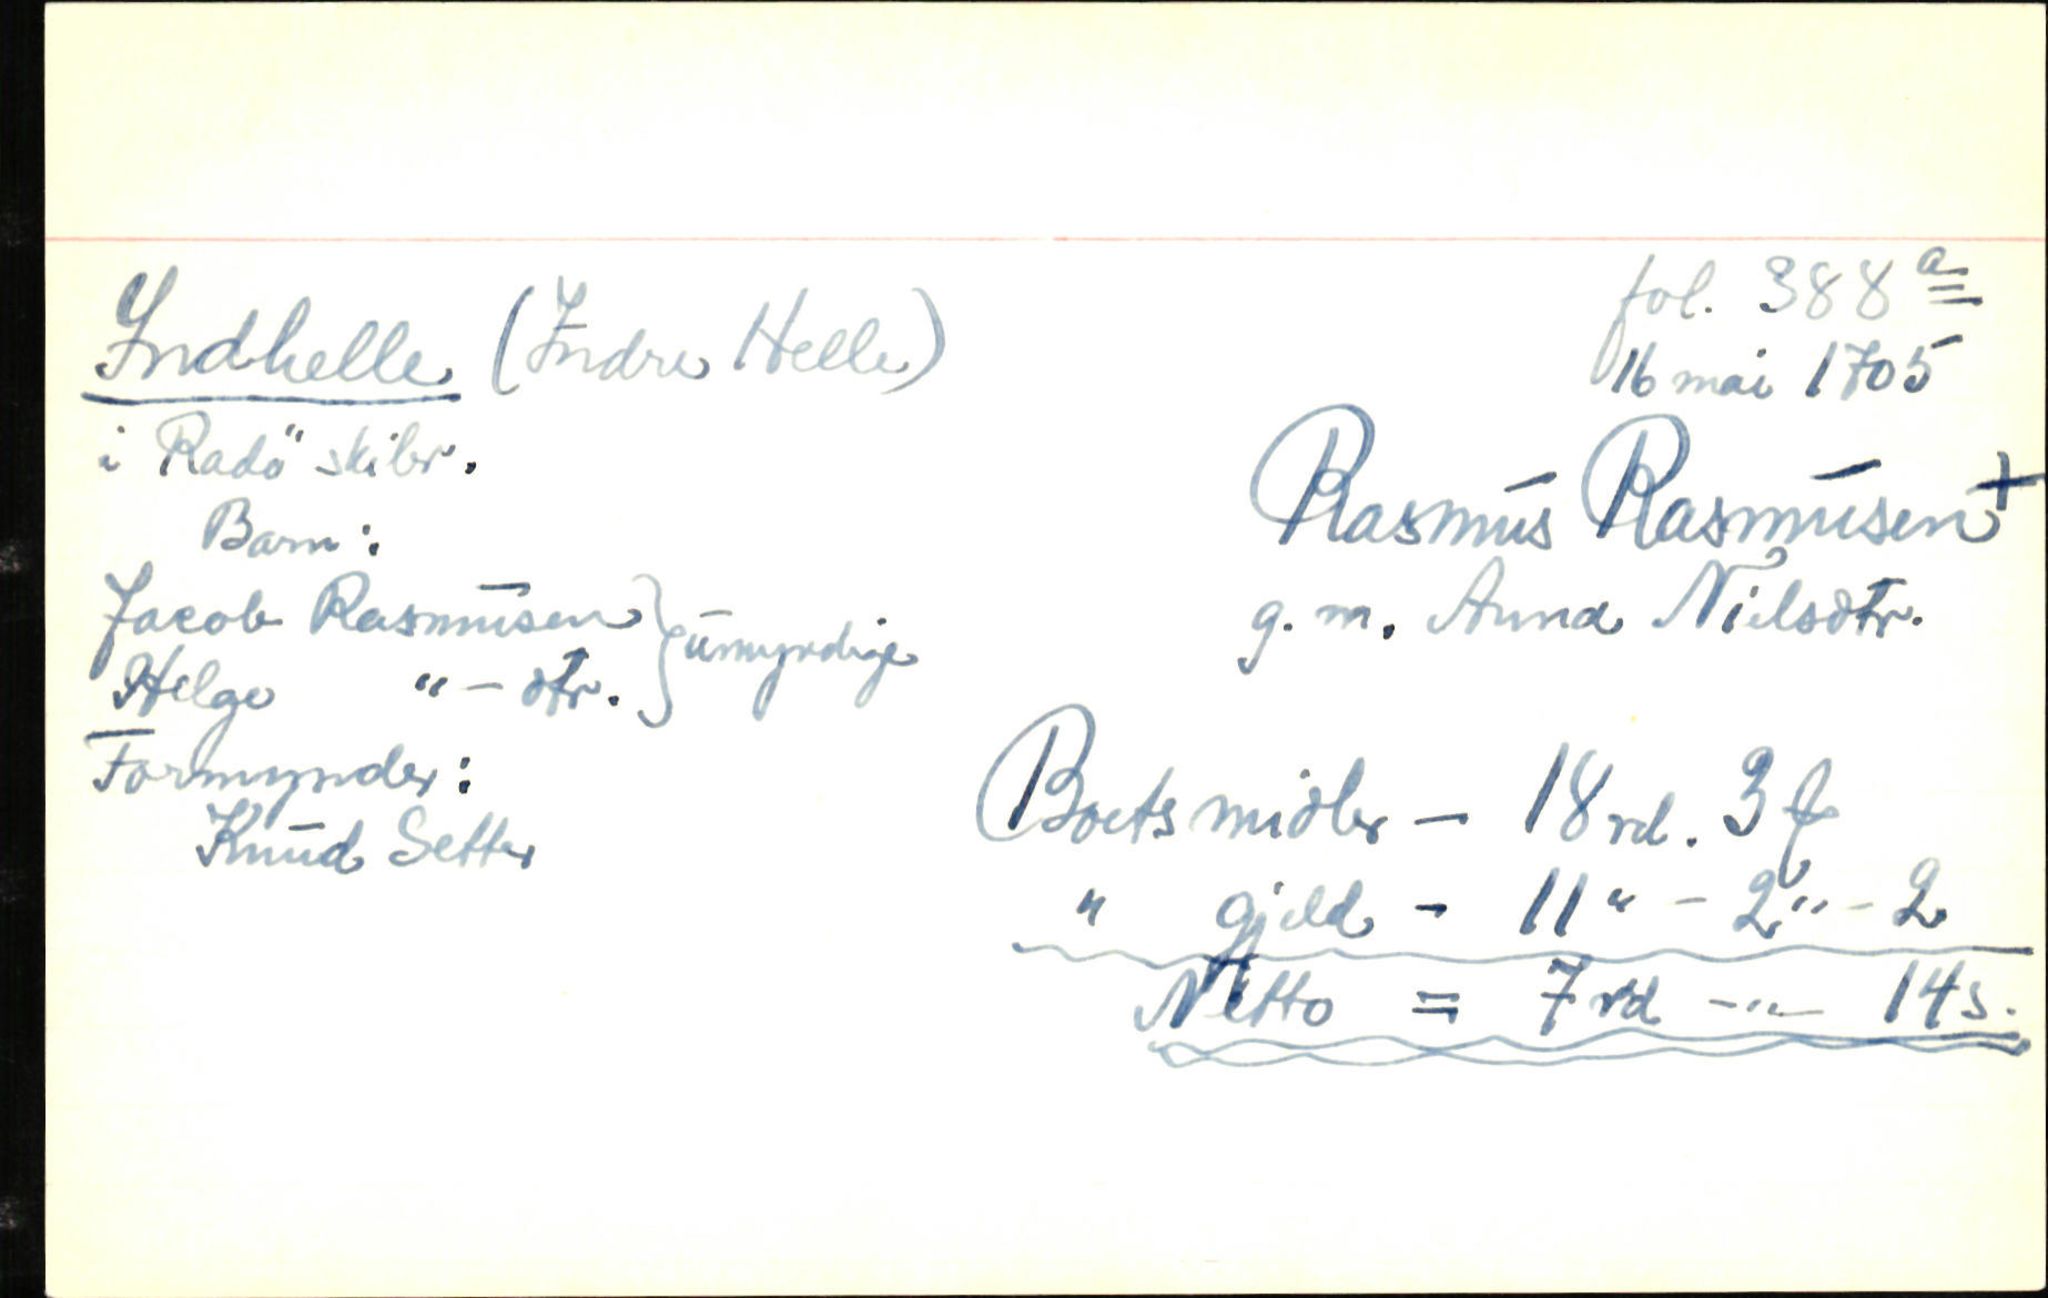 fol. 388 a
Indhelle (Indre Helle)
16 mai 1705
i Radö skibr.
Rasmus Rasmusen +
Barn:
g. m. Anna Nielsdtr.
Jacob Rasmusen } umyndige
Helge "— dtr.
Formynder:
Knud Setter
Boets midler — 18 rd. 3 f
" gjeld — 11 " — 2 " — 2
Netto = 7 rd —"— 14 s.